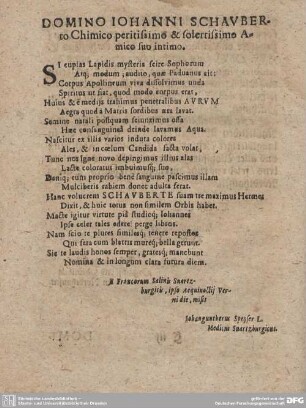 DOMINO IOHANNI SCHAVBER-
to Chimico peritissimo & solertissimo A-
mico suo intimo.
SI cupias Lapidis mysteria scire Sophorum
Atq; modum, audito, quæ Paduanus ait:
Corpus Apollineum viva dissolvimus unda
Spiritus ut fiat, quod modo corpus erat,
Huius & è medijs trahimus penetralibus AVRVM
Aegra quod à Matris sordibus ære lavat.
Semine natali postquam
Hæc consanguinea deinde lavamus Aqua.
Nascitur ex illis varios induta colores
Ales, & in cœlum Candida facta volat,
Tunc nos Igne novo depingimus illius alas
Lacte coloratas imbuimusq; suo,
Deniq; cum proprio bene sanguine pascimus illam
Mulciberis rabiem donec adulta ferat.
Hanc volucrem SCHAVBERTE suam ter maximus Hermes
Dixit, & huic totus non similem Orbis habet.
Macte igitur virtute piâ studioq; Iohannes
Ipse soler tales opere perge libros.
Nam scio te plures similesq; tenere repostos
Qui sita cum blattis bella gerunt.
Sic te laudis honos semper, gratesq; manebunt
Nomina & in longum clara futura diem.
E Francorum Salinis Suartz-
burgicis, ipso Aequinoctij Ver-
ni die, misit
Iohanguntherus Spröser L.
Medicus Suartzburgicus.